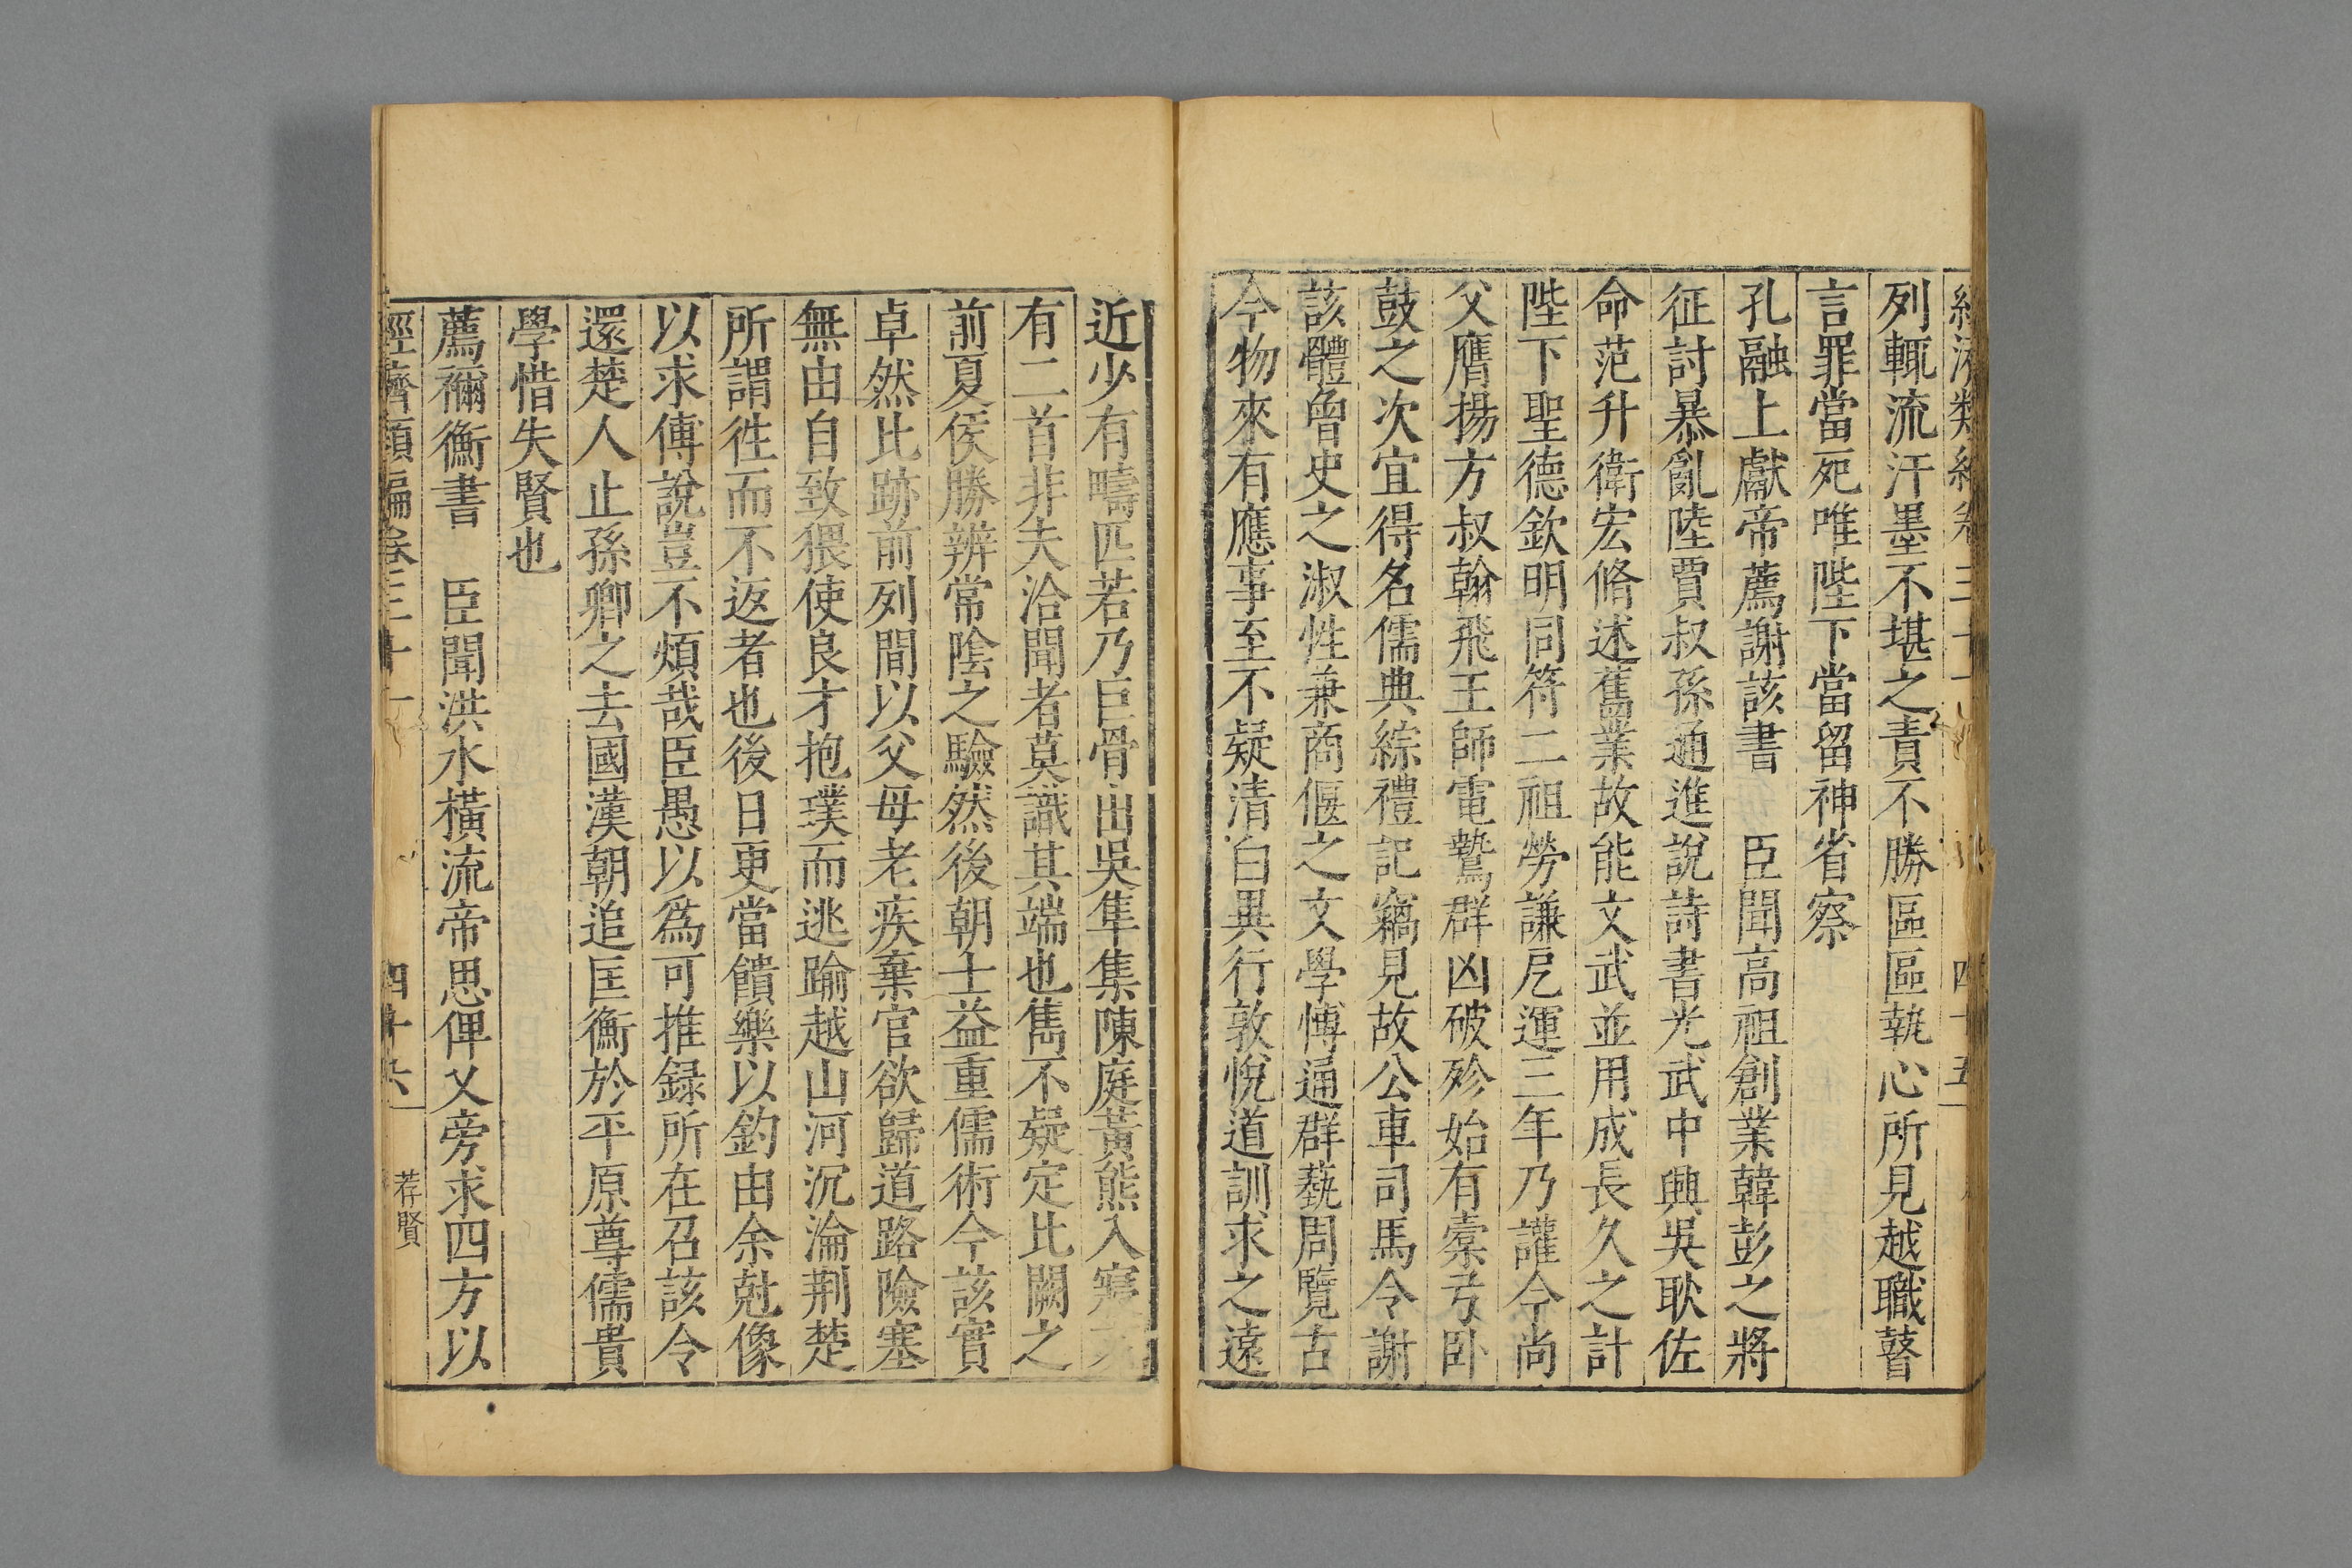 經濟類編卷三十一 四十五
列輒流汗墨不堪之責不勝區區執心所見越職瞽
言罪當死唯陛下當留神省察
孔融上獻帝薦謝該書 臣聞高祖創業韓彭之將
征討暴亂陸賈叔孫通進說詩書光武中興吳耿佐
命范升衛宏脩述舊業故能文武並用成長久之計
陛下聖德欽明同符二祖勞謙戹運三年乃讙今尚
父鷹揚方叔翰飛王師電鷙群凶破殄始有櫜弓卧
鼓之次宜得名儒典綜禮記竊見故公車司馬令謝
該體曾史之淑性兼商偃之文學博通群藝周覽古
今物來有應事至不疑清白異行敦悅道訓求之遠
近少有疇匹若乃巨骨出吳隼集陳庭黃熊入寢
有二首非夫洽聞者莫識其端也雋不疑定北闕之
前夏侯勝辨常陰之驗然後朝士益重儒術今該實
卓然比跡前列間以父母老疾棄官欲歸道路險塞
無由自致猥使良才抱璞而逃踰越山河沉淪荆楚
所謂徃而不返者也後日更當饋樂以釣由余尅像
以求傅說豈不煩哉臣愚以爲可推録所在召該令
還楚人止孫卿之去國漢朝追匡衡於平原尊儒貴
學惜失賢也
薦禰衡書 臣聞洪水橫流帝思俾乂旁求四方以
經濟類編卷三十一 四十六 荐賢